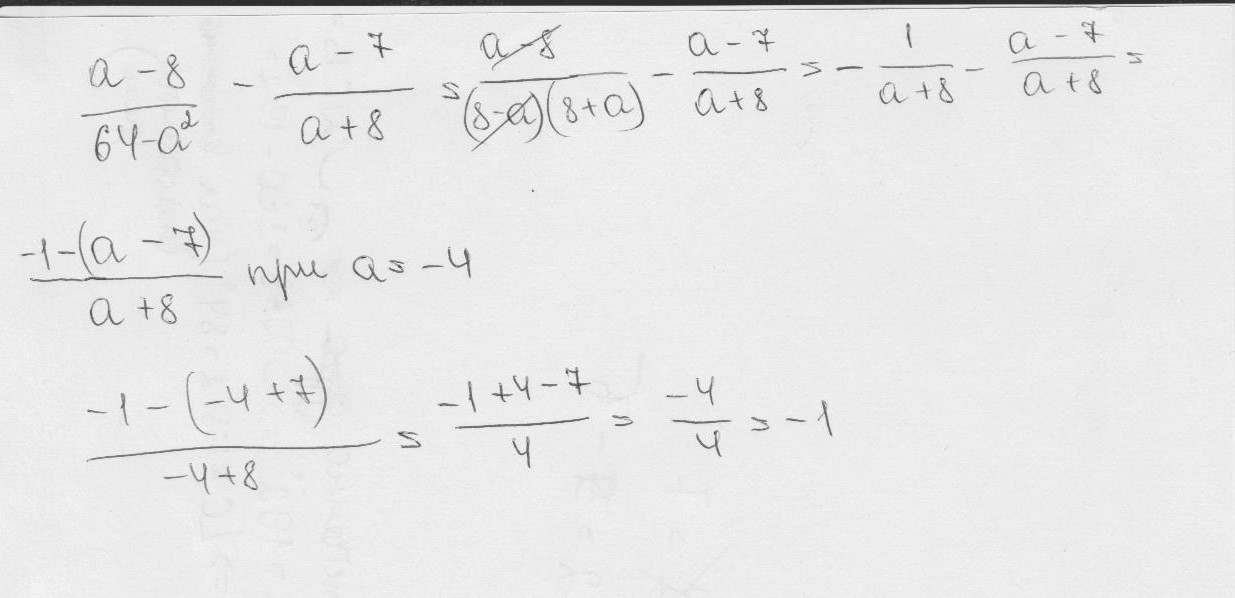 (a - 8)/(64 - a²) - (a - 7)/(a + 8) = (a - 8)/((8 - a)(8 + a)) - (a - 7)/(a + 8) = - 1/(a + 8) - (a - 7)/(a + 8) =
(-1 - (a - 7))/(a + 8) при a = -4
(-1 - (-4 + 7))/(-4 + 8) = (-1 + 4 - 7)/4 = -4/4 = -1